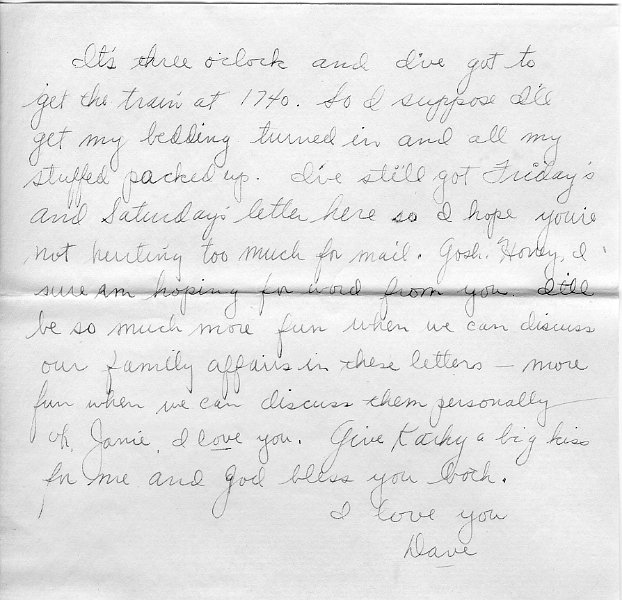 It's three o'clock and I've got to
get the train at 1740. So I suppose I'll
get my bedding turned in and all my
stuffed packed up. I've still got Friday's
and Saturday's letter here so I hope you're
not hurting too much for mail. Gosh, Honey, I
sure am hoping for word from you. It'll
be so much more fun when we can discuss
our family affairs in these letters — more
fun when we can discuss them personally
Oh, Janie, I love you. Give Kathy a big kiss
for me and God bless you both.
I love you
Dave